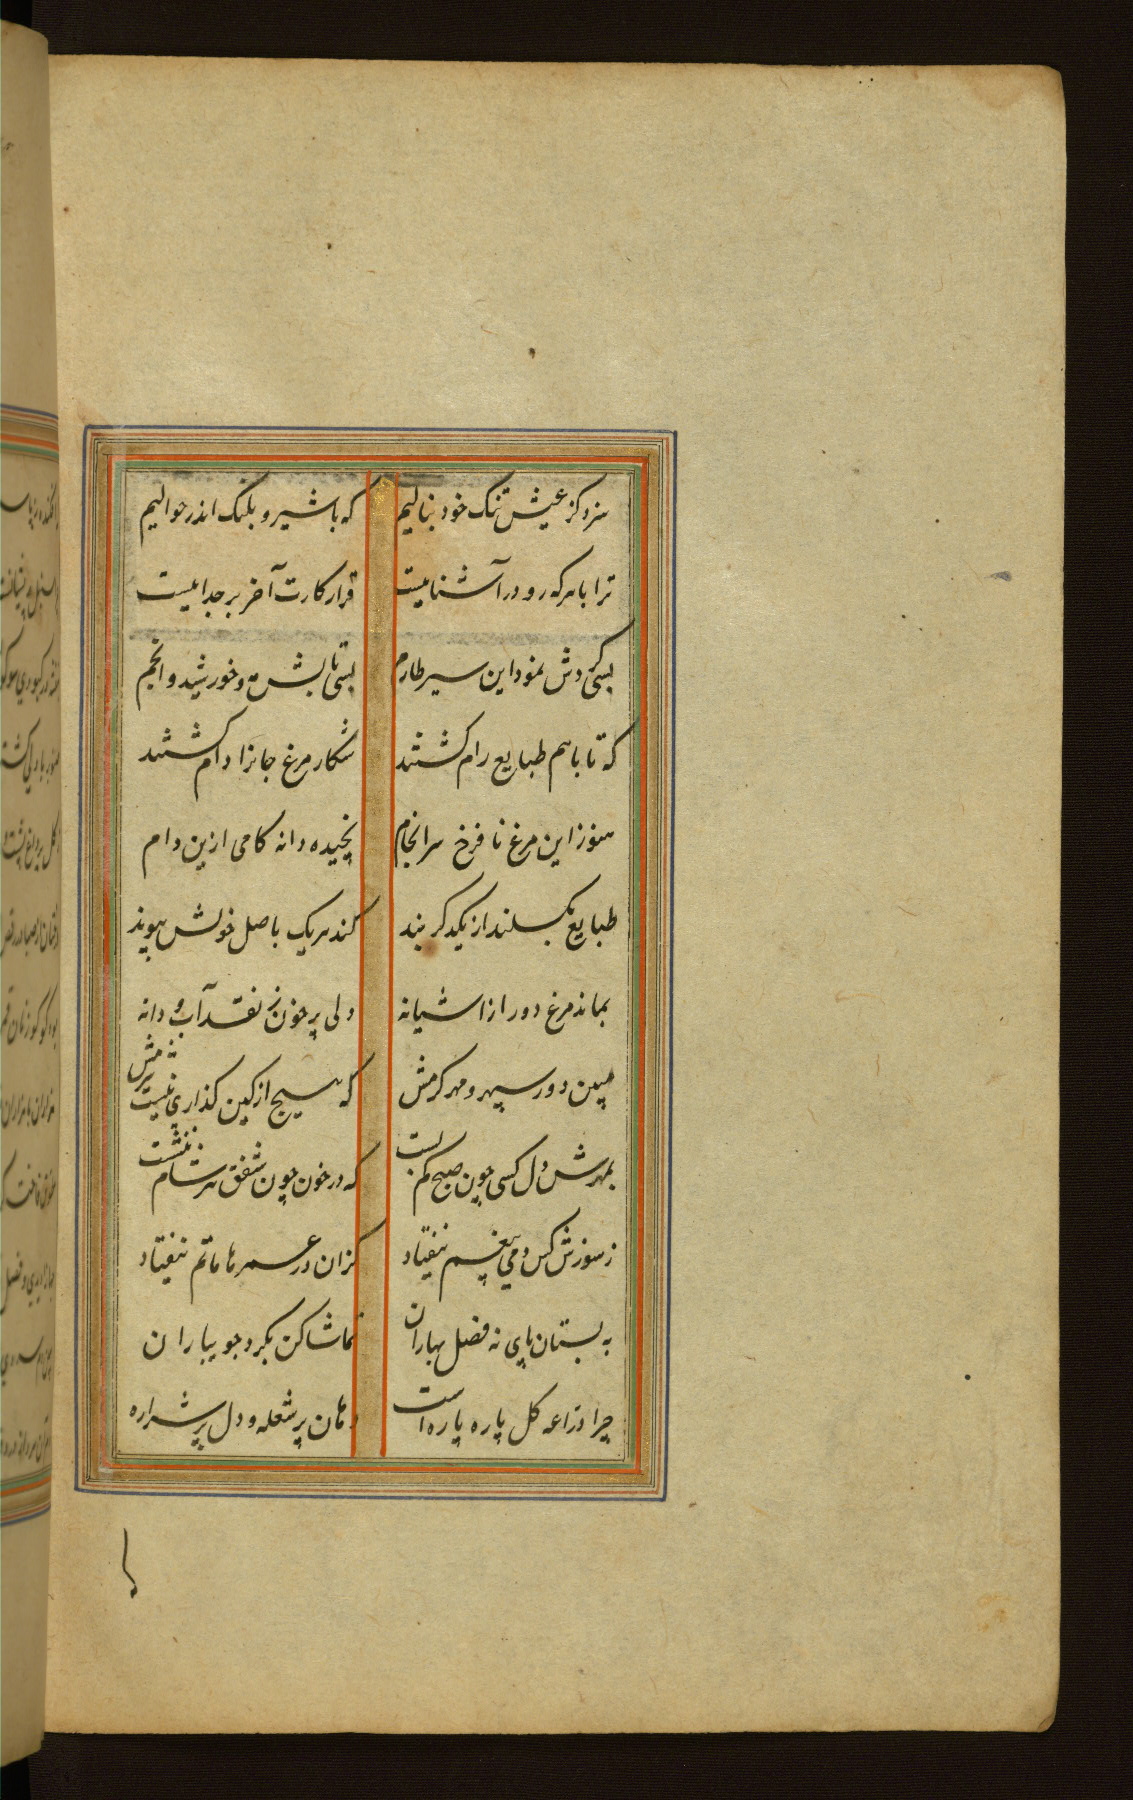 سزد کز عیش تنک خود بنالیم که با شیر و پلنک اندر جوالیم
ترا با هر که رو در آشناییست قرار کارت آخر بر جداییست
بسی کردش نمود این سیر طارم بسی تابش مه و خورشید و انجم
که تا با هم طبایع رام کشتند شکار مرغ جانرا دام کشتند
هنوز این مرغ نا فرخ سرانجام نچیده دانه کامی ازین دام
طبایع بکسلند از یکدکر بند کند هر یک باصل خویش پیوند
بماند مرغ دور از اشیانه دلی پر خون ز نقد آب و دانه
مبین دور سپهر و مهر کرمش که هیچ از کین کذاری نیست شرمش
بمهرش دل کسی چون صبح کم بست که در خون چون شفق هر شام ننشست
ز سوزش کس دمی بیغم نیفتاد کزان در عمرها ماتم نیفتاد
به بستان پای نه فصل بهاران تماشا کن بکرد جویباران
چرا دراعه کل پاره پاره است دهان پر شعله و دل پر شراره